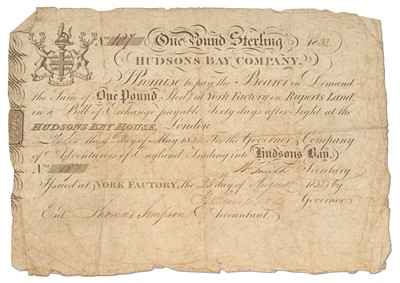 No. One Pound Sterling
HUDSONS BAY COMPANY.
I Promise to pay the Bearer on Demand
the Sum of One Pound Sterlg. at York Factory in Ruperts Land
in a Bill of Exchange payable Sixty days after Sight at the
HUDSONS BAY HOUSE, London
day of May For the Governor & Company
of Adventurers of England Trading into Hudsons Bay.
No. W. Smith Secretary
Issued at YORK FACTORY, the day of August by
Governor.
Entd. Thomas Simpson Accountant.